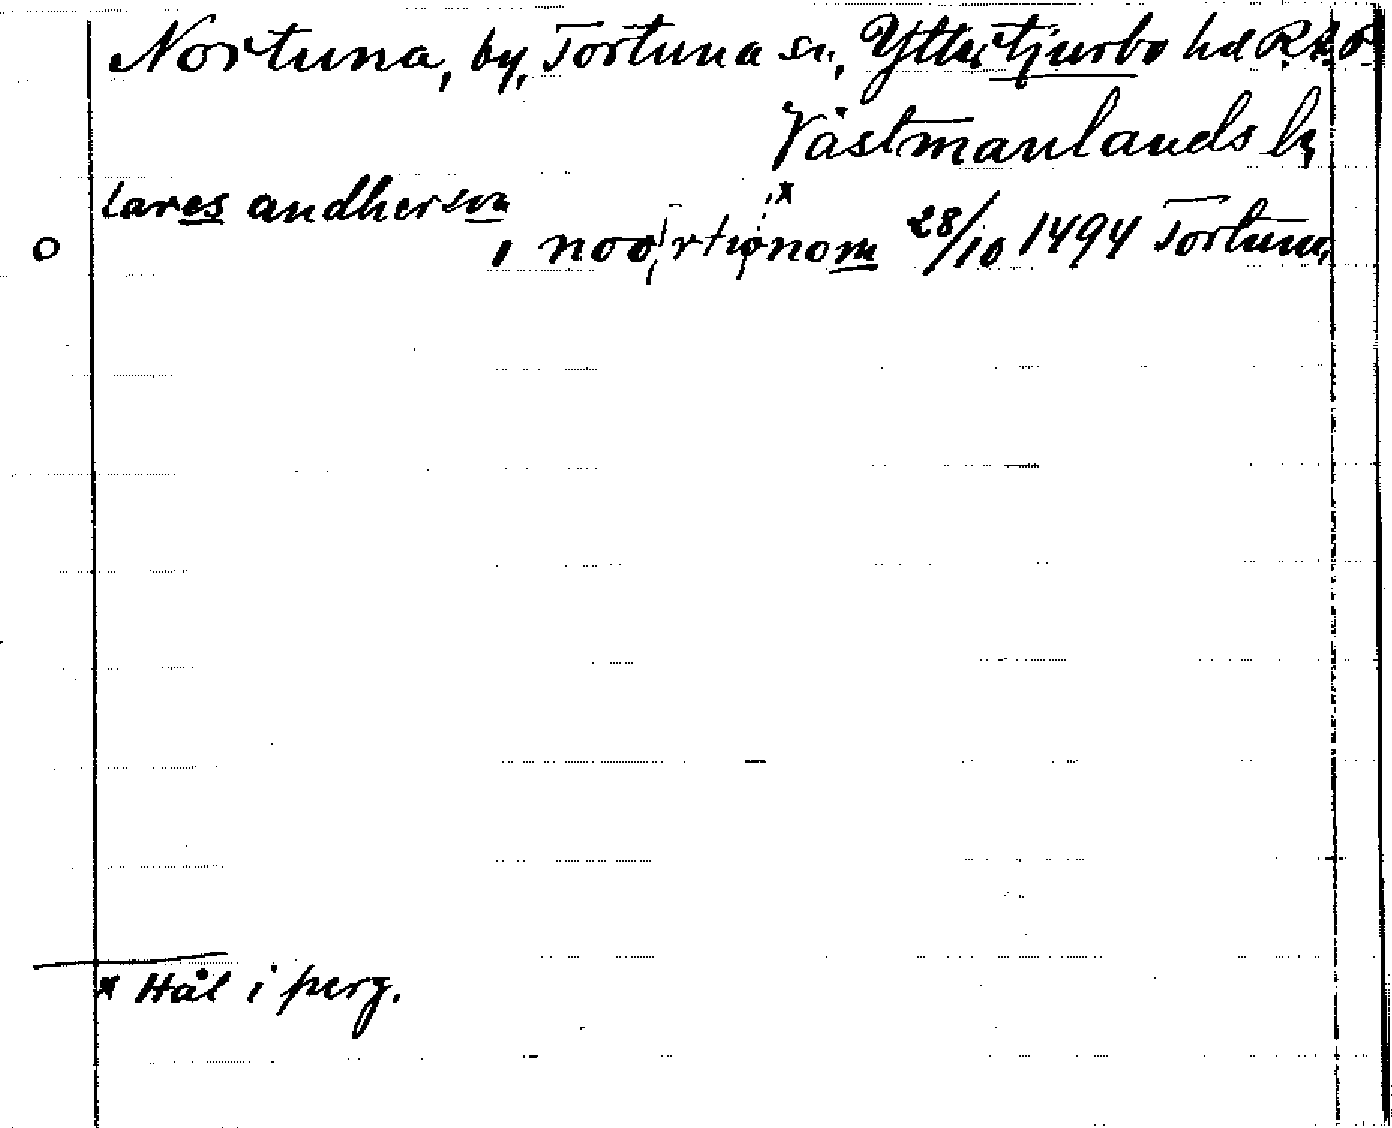 Nortuna, by, Tortuna sn, Yttertjurbo hd R.A.O.
Västmanlands l.
lares andherson
o , noo(r)tunom x 28/10 1494 Tortuna,
x Hål i perg.